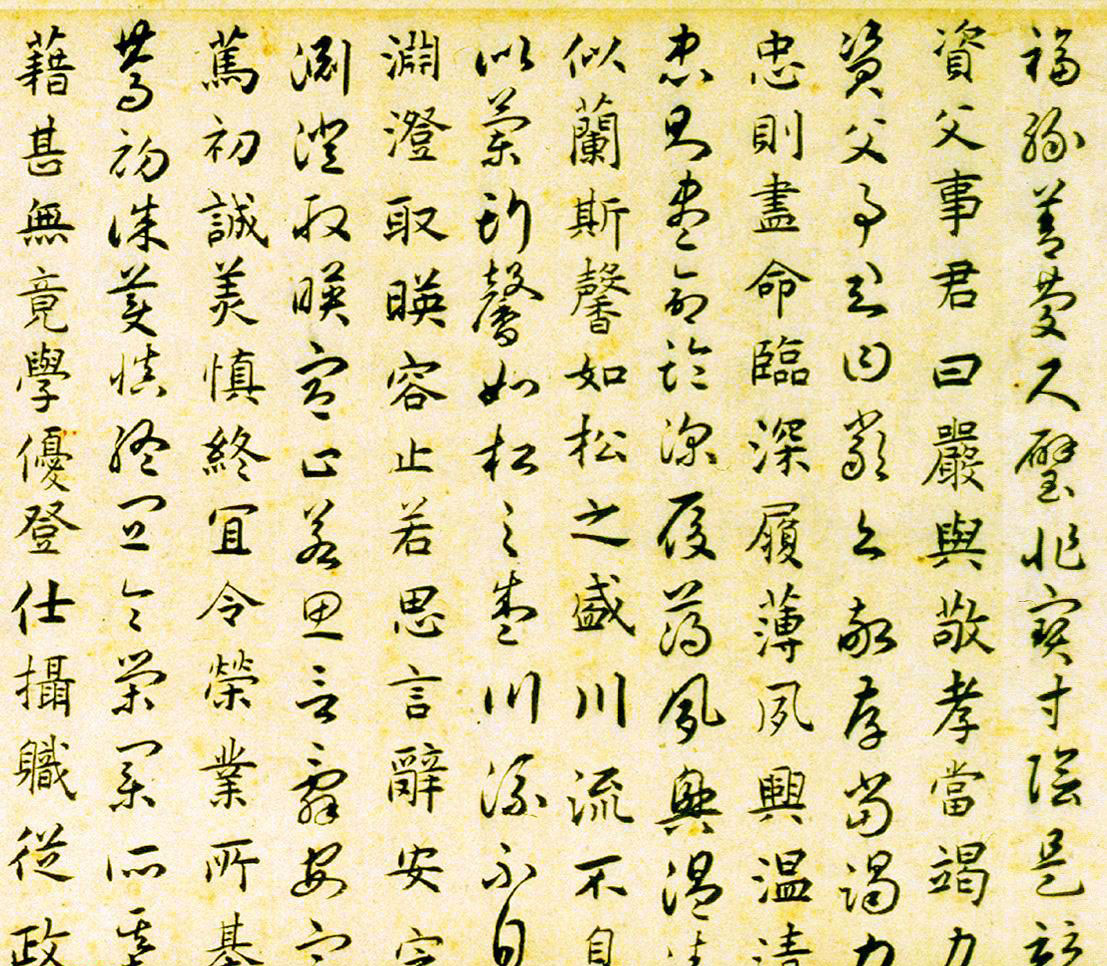 福緣善慶尺璧非寶寸陰是競
資父事君曰嚴與敬孝當竭力
資父事君曰嚴與敬孝當竭力
忠則盡命臨深履薄夙興温清
忠則盡命臨深履薄夙興温清
似蘭斯馨如松之盛川流不息
似蘭斯馨如松之盛川流不息
淵澄取暎容止若思言辭安定
淵澄取暎容止若思言辭安定
篤初誠美慎終宜令榮業所基
篤初誠美慎終宜令榮業所基
藉甚無竟學優登仕攝職從政